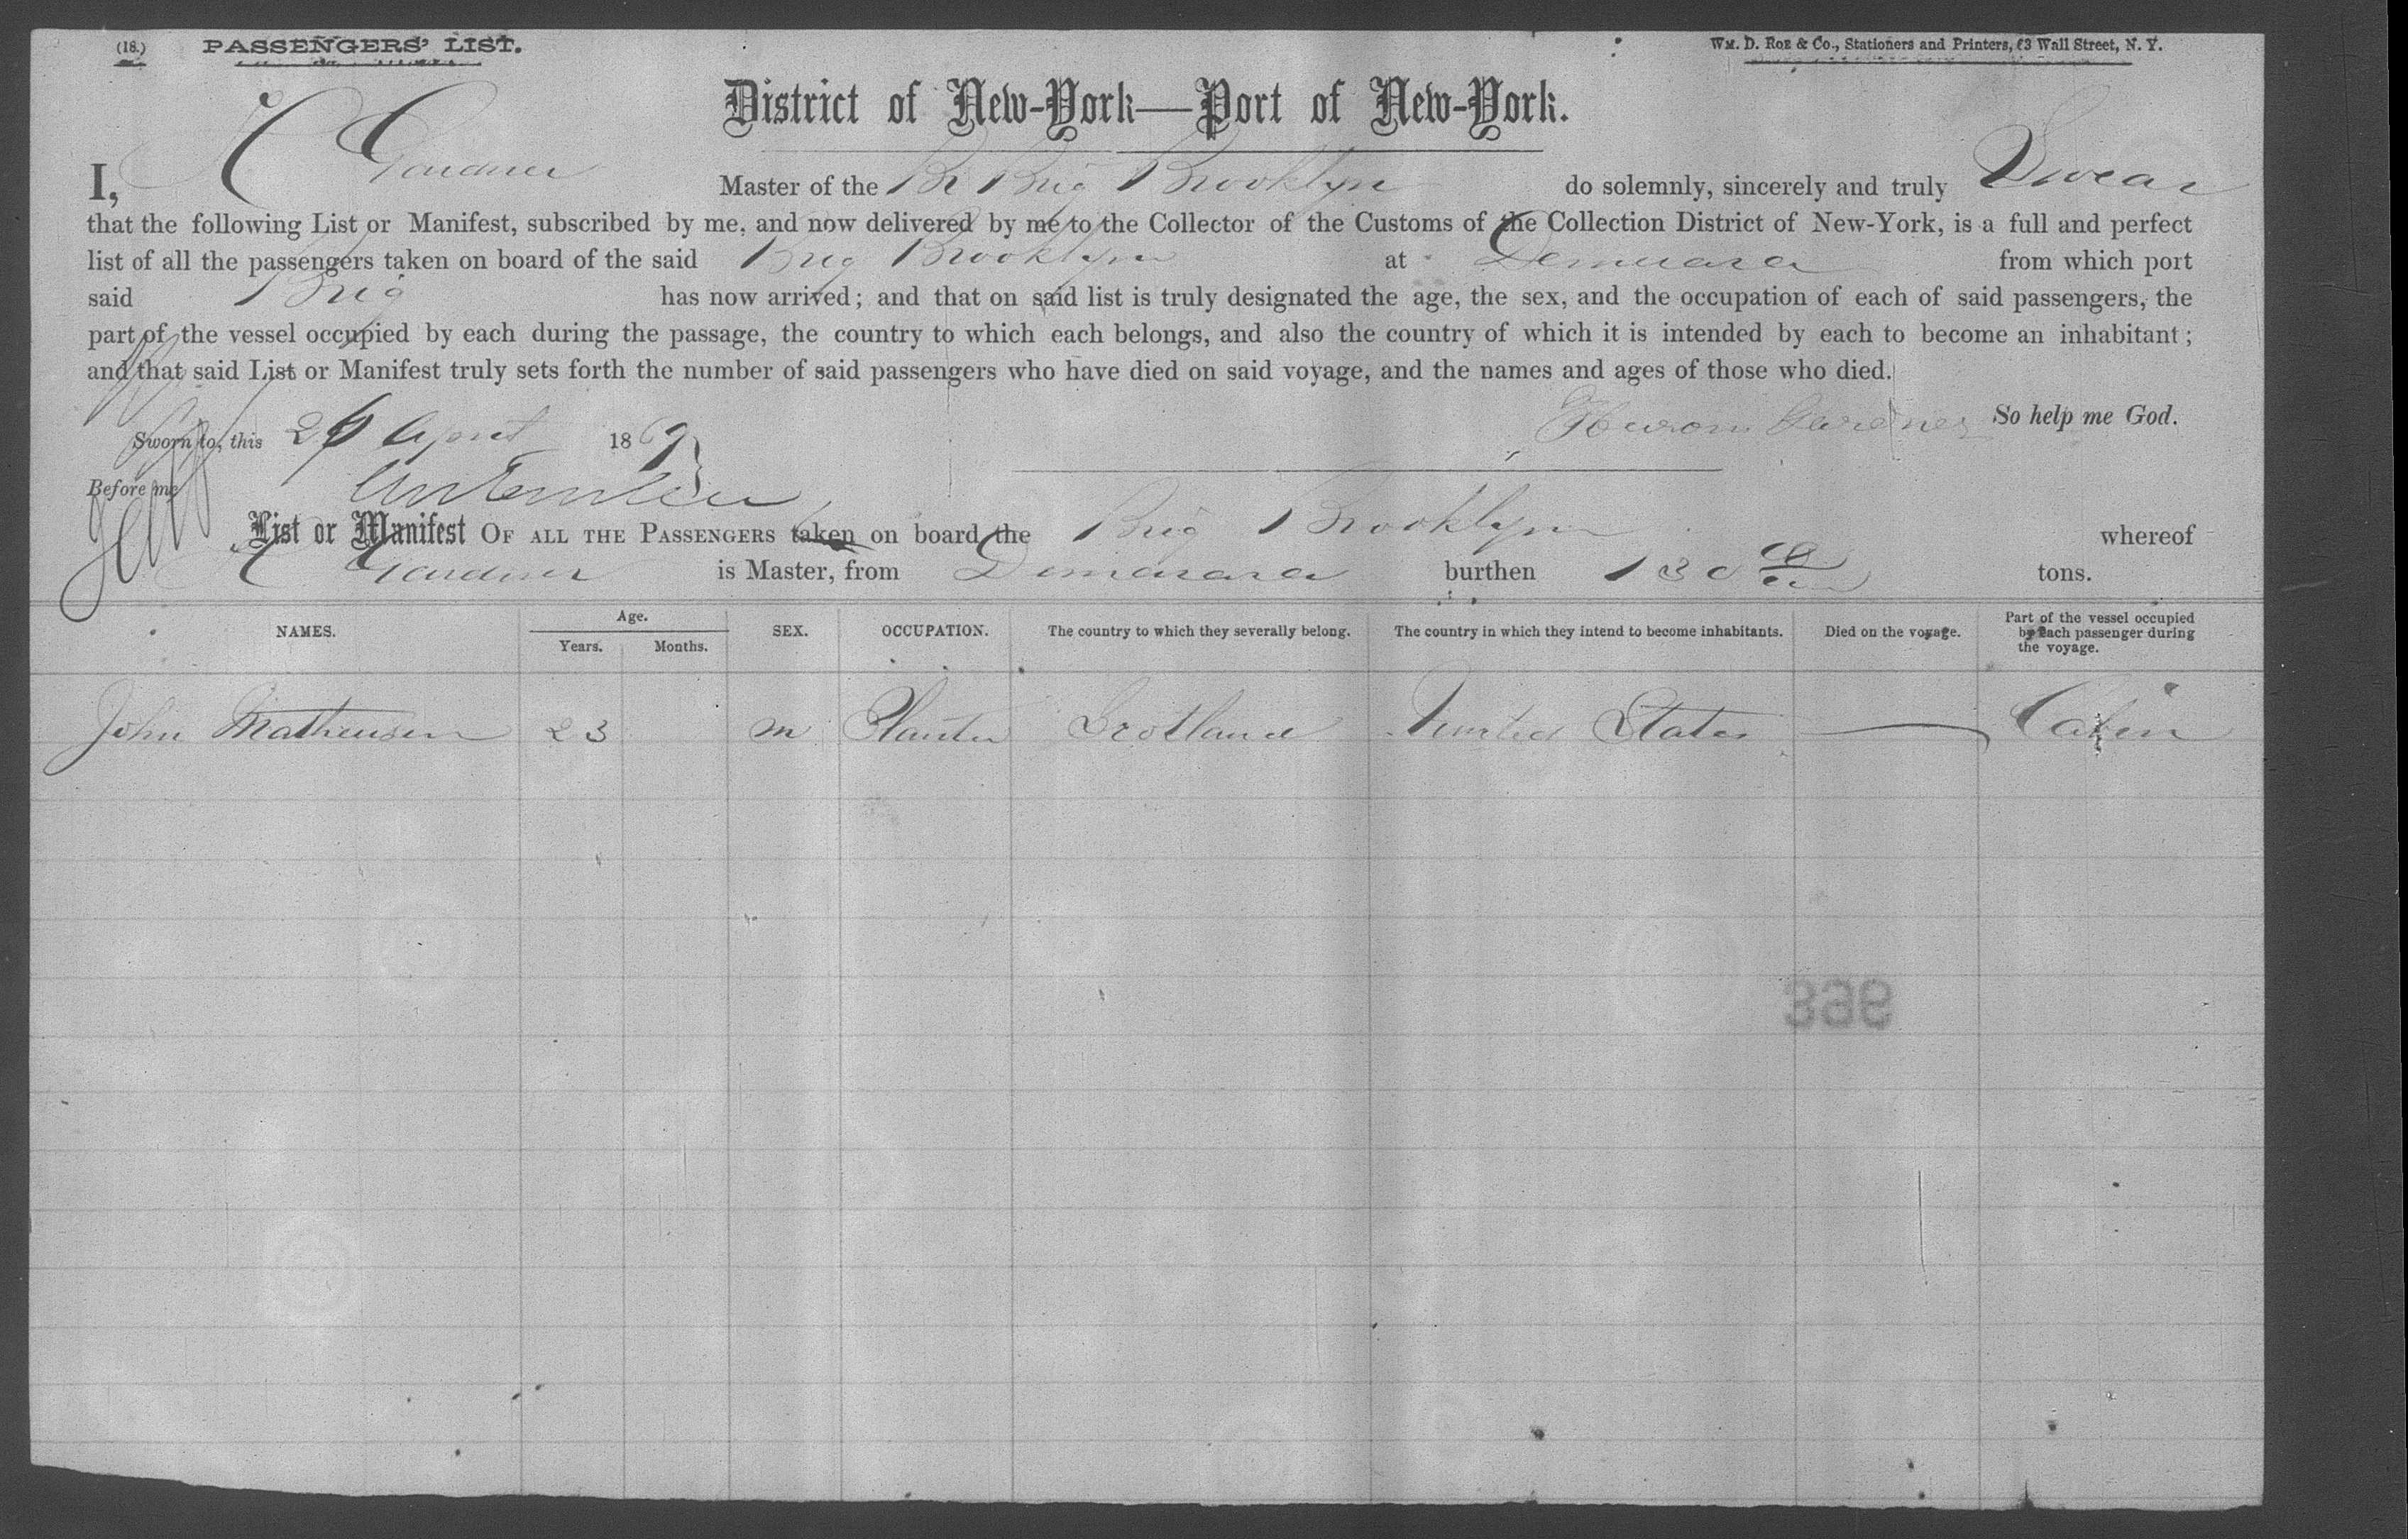 (18.) PASSENGERS' LIST. Wm. D. Roe & Co., Stationers and Printers, 63 Wall Street, N. Y.
District of New-York—Port of New-York.
I, H Gardner Master of the Br Brig Brooklyn do solemnly, sincerely and truly Swear
that the following List or Manifest, subscribed by me, and now delivered by me to the Collector of the Customs of the Collection District of New-York, is a full and perfect
list of all the passengers taken on board of the said Brig Brooklyn at Demerara from which port
said Brig has now arrived; and that on said list is truly designated the age, the sex, and the occupation of each of said passengers, the
part of the vessel occupied by each during the passage, the country to which each belongs, and also the country of which it is intended by each to become an inhabitant;
and that said List or Manifest truly sets forth the number of said passengers who have died on said voyage, and the names and ages of those who died.
Gardner So help me God.
Sworn to, this 26 April 1869
Before me
List or Manifest Of all the Passengers taken on board the Brig Brooklyn whereof
H Gardner is Master, from Demerara burthen 130 tons.
NAMES. Age. Years. Months. SEX. OCCUPATION. The country to which they severally belong. The country in which they intend to become inhabitants. Died on the voyage. Part of the vessel occupied by each passenger during the voyage.
John Mathewson 23 m Planter Scotland United States — Cabin
396